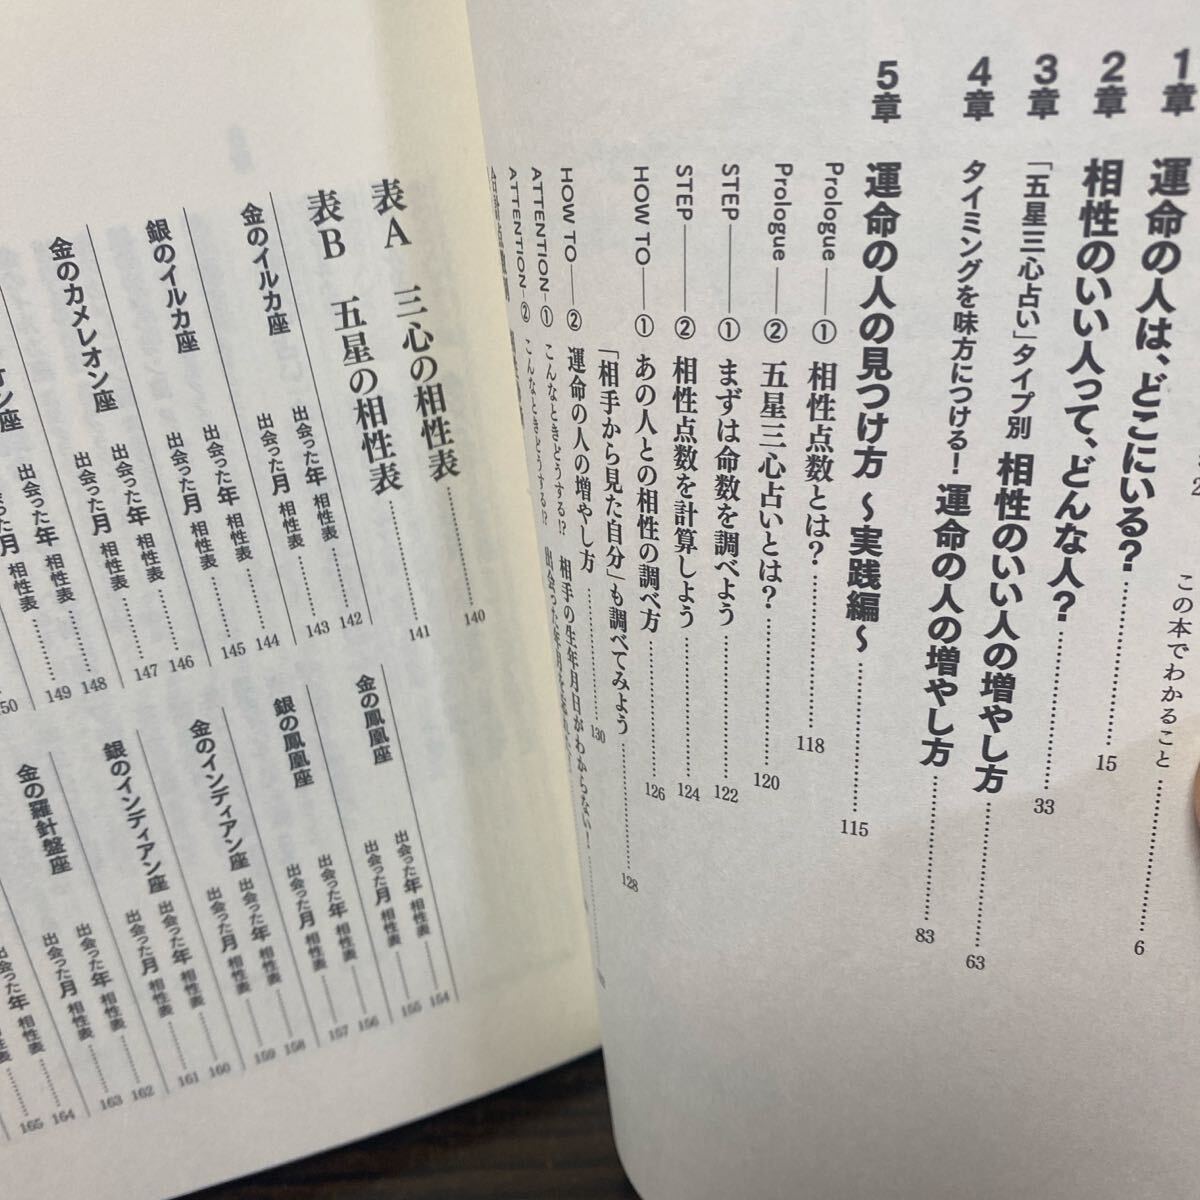 2
この本でわかること………6
1章 運命の人は、どこにいる？………15
2章 相性のいい人って、どんな人？………33
3章 「五星三心占い」タイプ別 相性のいい人の増やし方………63
4章 タイミングを味方につける！ 運命の人の増やし方………83
5章 運命の人の見つけ方 〜実践編〜………115
Prologue―① 相性点数とは？………118
Prologue―② 五星三心占いとは？………120
STEP―① まずは命数を調べよう………122
STEP―② 相性点数を計算しよう………124
HOW TO―① あの人との相性の調べ方………126
「相手から見た自分」も調べてみよう………128
HOW TO―② 運命の人の増やし方………130
ATTENTION―① こんなときどうする!? 相手の生年月日がわからない！
ATTENTION―② こんなときどうする!?
表A 三心の相性表………140
表B 五星の相性表………141
金のイルカ座
出会った年 相性表………142
出会った月 相性表………143
銀のイルカ座
出会った年 相性表………144
出会った月 相性表………145
金のカメレオン座
出会った年 相性表………146
出会った月 相性表………147
出会った年 相性表………148
出会った月 相性表………149
金の鳳凰座
出会った年 相性表………154
出会った月 相性表………155
銀の鳳凰座
出会った年 相性表………156
出会った月 相性表………157
金のインディアン座
出会った年 相性表………158
出会った月 相性表………159
銀のインディアン座
出会った年 相性表………160
出会った月 相性表………161
金の羅針盤座
出会った年 相性表………162
出会った月 相性表………163
出会った年 相性表………164
165